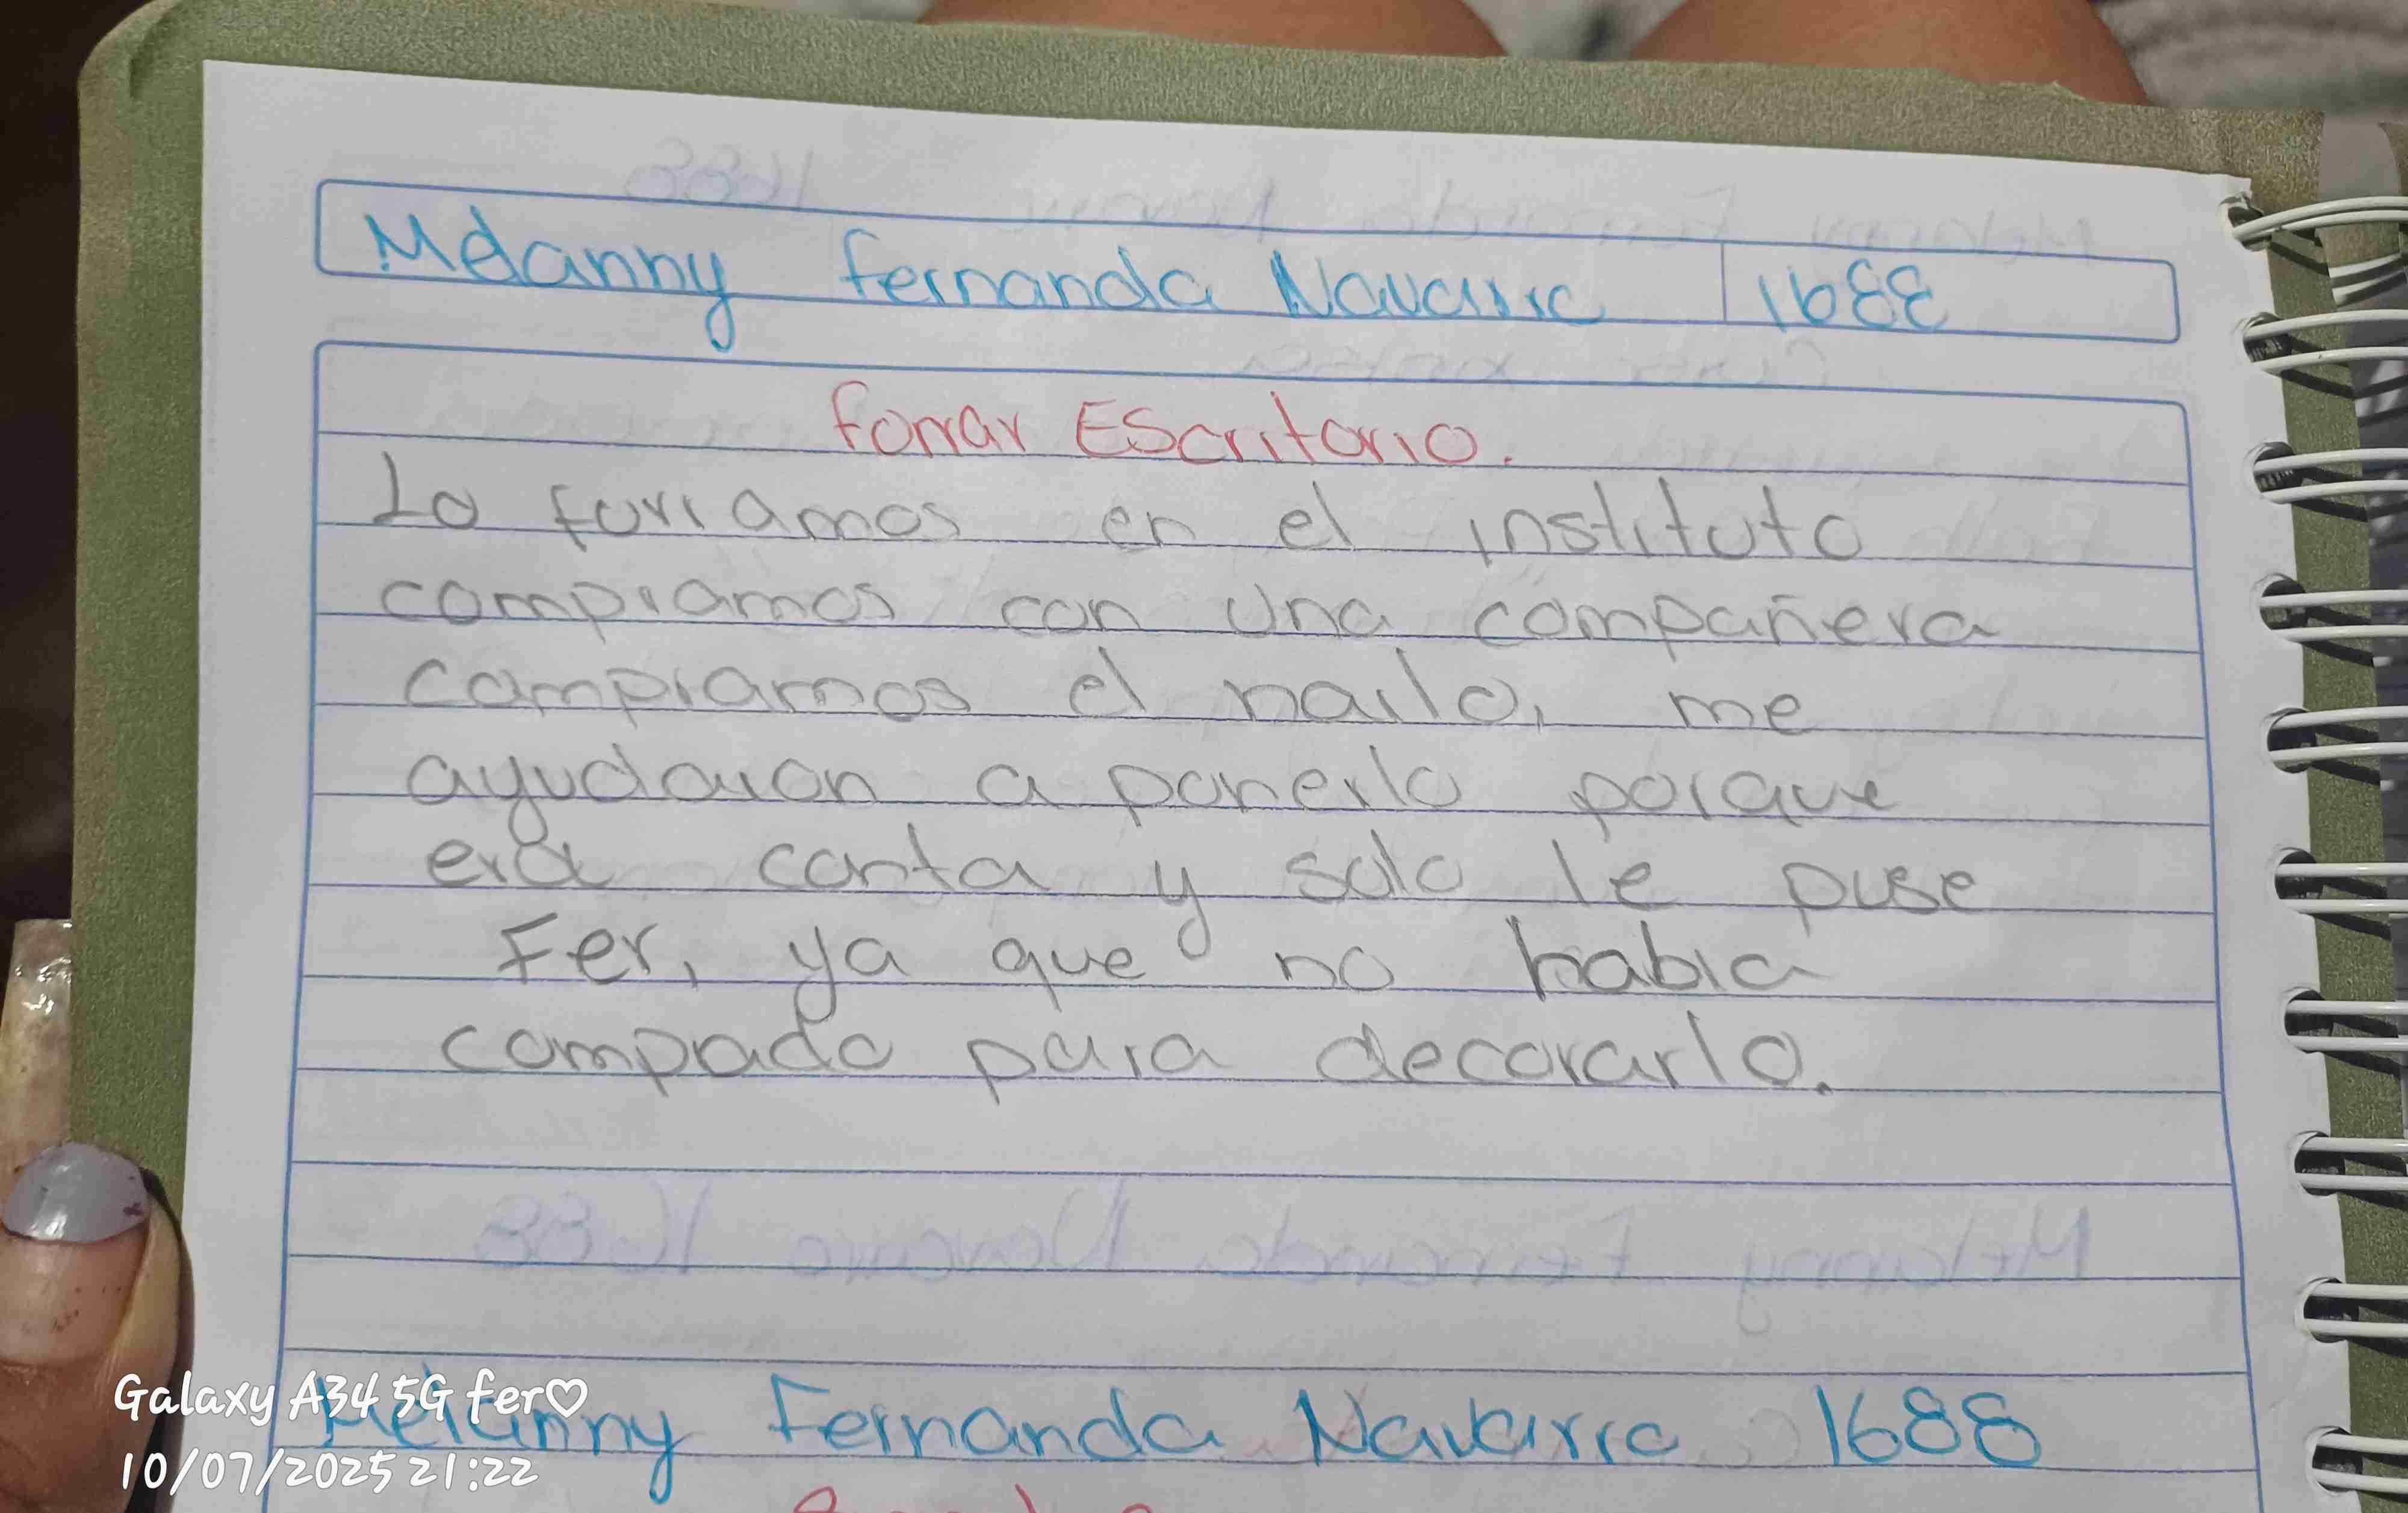 Melanny Fernanda Navarro 1688
Forrar Escritorio.
Lo forramos en el instituto
compramos con una compañera
compramos el nailo, me
ayudaron a ponerlo porque
era corta y solo le puse
Fer, ya que no habia
compado para decorarlo.
Melanny Fernanda Navarro 1688
Galaxy A34 5G fer♡
10/07/2025 21:22